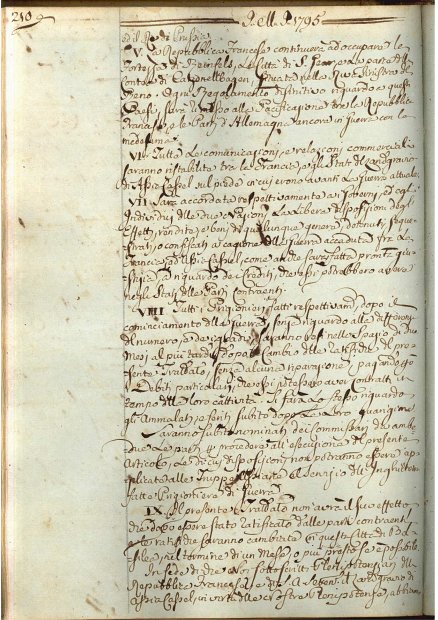 210
P. M. P. 1795
ed il Re di Prussia.
V. La Repubblica Francese continuerà ad occupare le
Fortezza di Rheinfels, la Città di S. Goar, e la parte della
Contea di Catzenellbogen situata nella Riva sinistra del
Reno. Ogni Regolamento difinitivo riguardo a questi
Paesi, sarà rimesso alla Pacificazione tra la Repubblica
Francese, e le Parti d'Allemagna ancora in guerra con la
medesima.
VI. Tutte le comunicazioni, e relazioni commerciali
saranno ristabilite tra la Francia, e gli Stati del Landgravio
di Assia Cassel sul piede in cui erano avanti la Guerra attuale.
VII. Sarà accordata respettivamente ai Governi, ed agli
Individui delle due Nazioni la libera disposizione degli
Effetti, rendite, e beni di qualunque genere, detenuti, seque-
strati, o confiscati a cagione della Guerra accaduta fra la
Francia, ed Assia Cassel, come anche sarà fatta pronta giu-
stizia riguardo ai Crediti, che essi potrebbero avere
negli Stati delle Parti contraenti.
VIII. Tutti i Prigionieri fatti respettivam. dopo il
cominciamento della guerra, senza riguardo alla differenza
di numero, e de' gradi, saranno resi nello spazio di due
mesi al più tardi dopo il cambio delle ratifiche del pre-
sente Trattato, senza alcuna riparazione, pagando però
i Debiti particolari, che essi potessero aver contratti in
tempo della loro cattività. Si farà lo stesso riguardo
agli Ammalati, e feriti subito dopo la loro guarigione.
Saranno subito nominati dei Commissari da ambe-
due le parti, per procedere all'esecuzione del presente
Articolo, le di cui disposizioni non potranno essere ap-
plicate alle Truppe Assiane al servizio dell'Inghilterra
fatte Prigioniere di Guerra.
IX. Il presente Trattato non avrà il suo effetto
che dopo essere stato ratificato dalle parti contraenti,
e le ratifiche saranno cambiate in questa Città di Ba-
silea nel termine di un Mese, o più presto se è possibile.
In fede di che Noi sottoscritti Plenipotenziari della
Repubblica Francese, e di S. A. Seren. il Landgravio di
Assia Cassel, in virtù delle nostre Plenipotenze, abbiamo